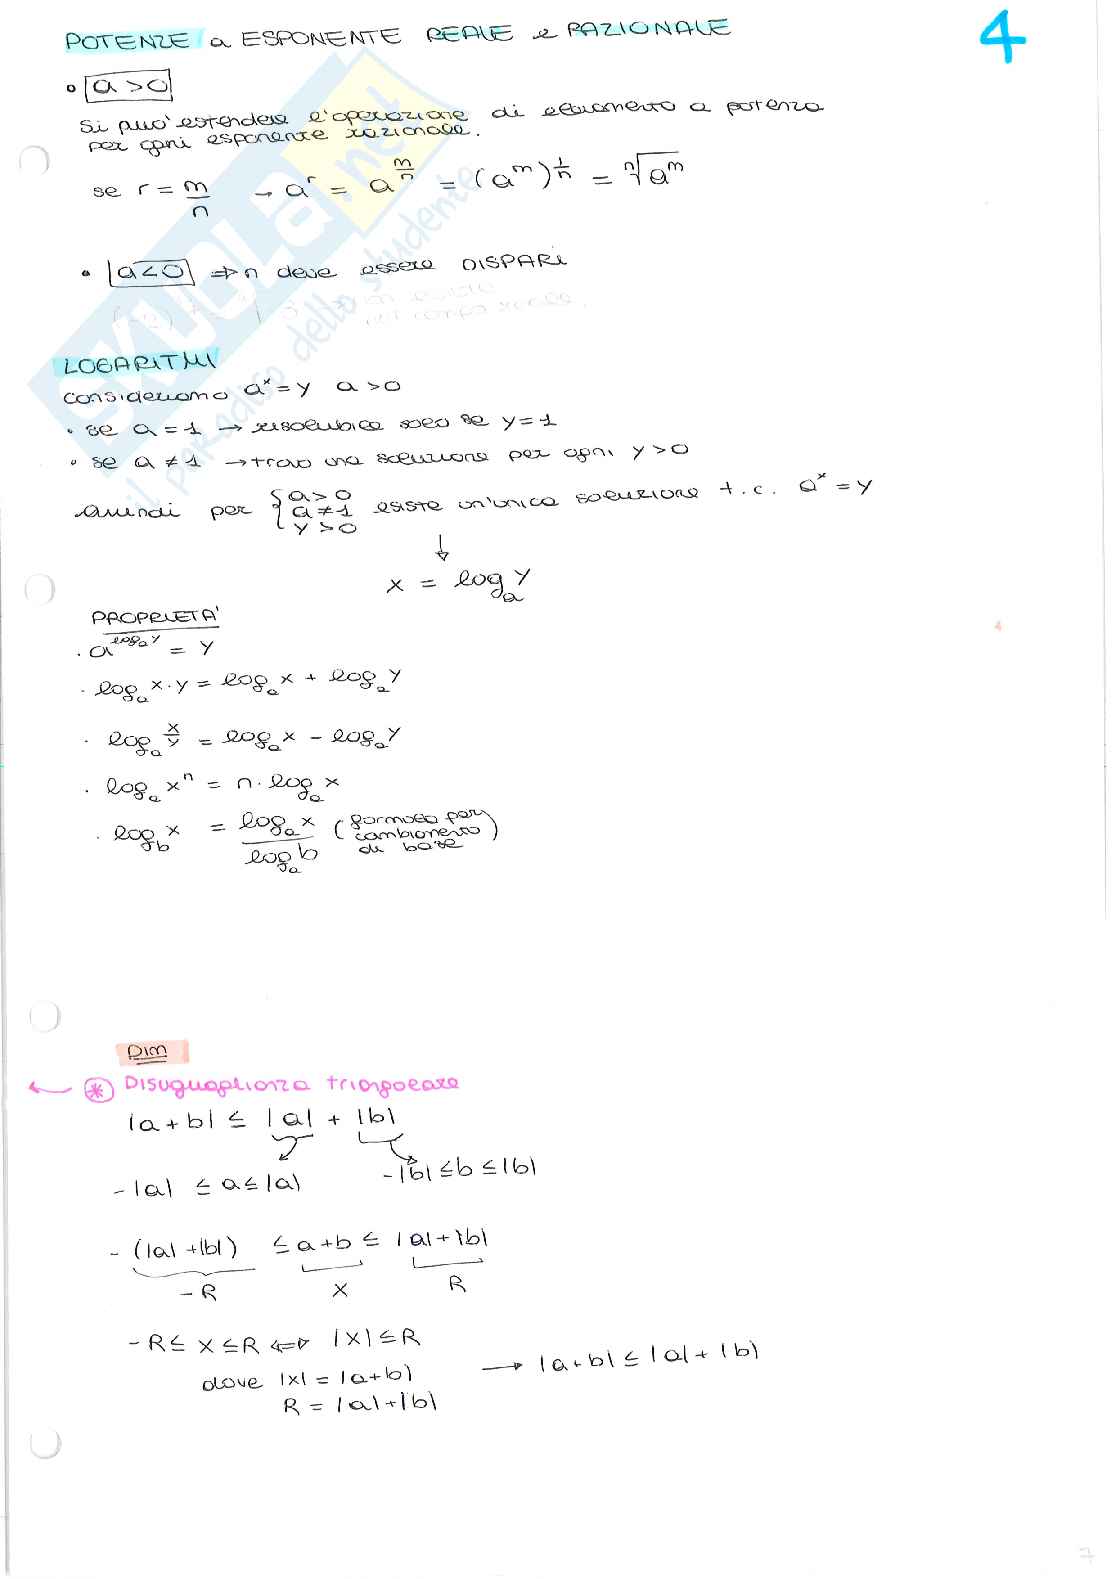 POTENZE a ESPONENTE REALE e RAZIONALE
4
a>0
Si può estendere l'operazione di elevamento a potenza
per ogni esponente razionale.
se r = m/n → a^r = a^(m/n) = (a^m)^(1/n) = ⁿ√a^m
a<0 ⇒ n deve essere DISPARI
LOGARITMI
consideriamo a^x = y a>0
• se a = 1 → risolubile solo se y = 1
• se a ≠ 1 → trovo una soluzione per ogni y>0
Quindi per { a>0 a≠1 y>0 esiste un'unica soluzione t.c. a^x = y
↓
x = log_a y
PROPRIETA'
· a^(log_a y) = y
· log_a x·y = log_a x + log_a y
· log_a x/y = log_a x - log_a y
· log_a x^n = n · log_a x
· log_b x = log_a x / log_a b (formula per cambiamento di base)
4
Dim
← * Disuguaglianza triangolare
|a+b| ≤ |a| + |b|
-|a| ≤ a ≤ |a| -|b| ≤ b ≤ |b|
-(|a|+|b|) ≤ a+b ≤ |a|+|b|
-R x R
-R ≤ x ≤ R ⇔ |x| ≤ R
dove |x| = |a+b| → |a+b| ≤ |a| + |b|
R = |a|+|b|
7
SKUOLA.net
il paradiso dello studente